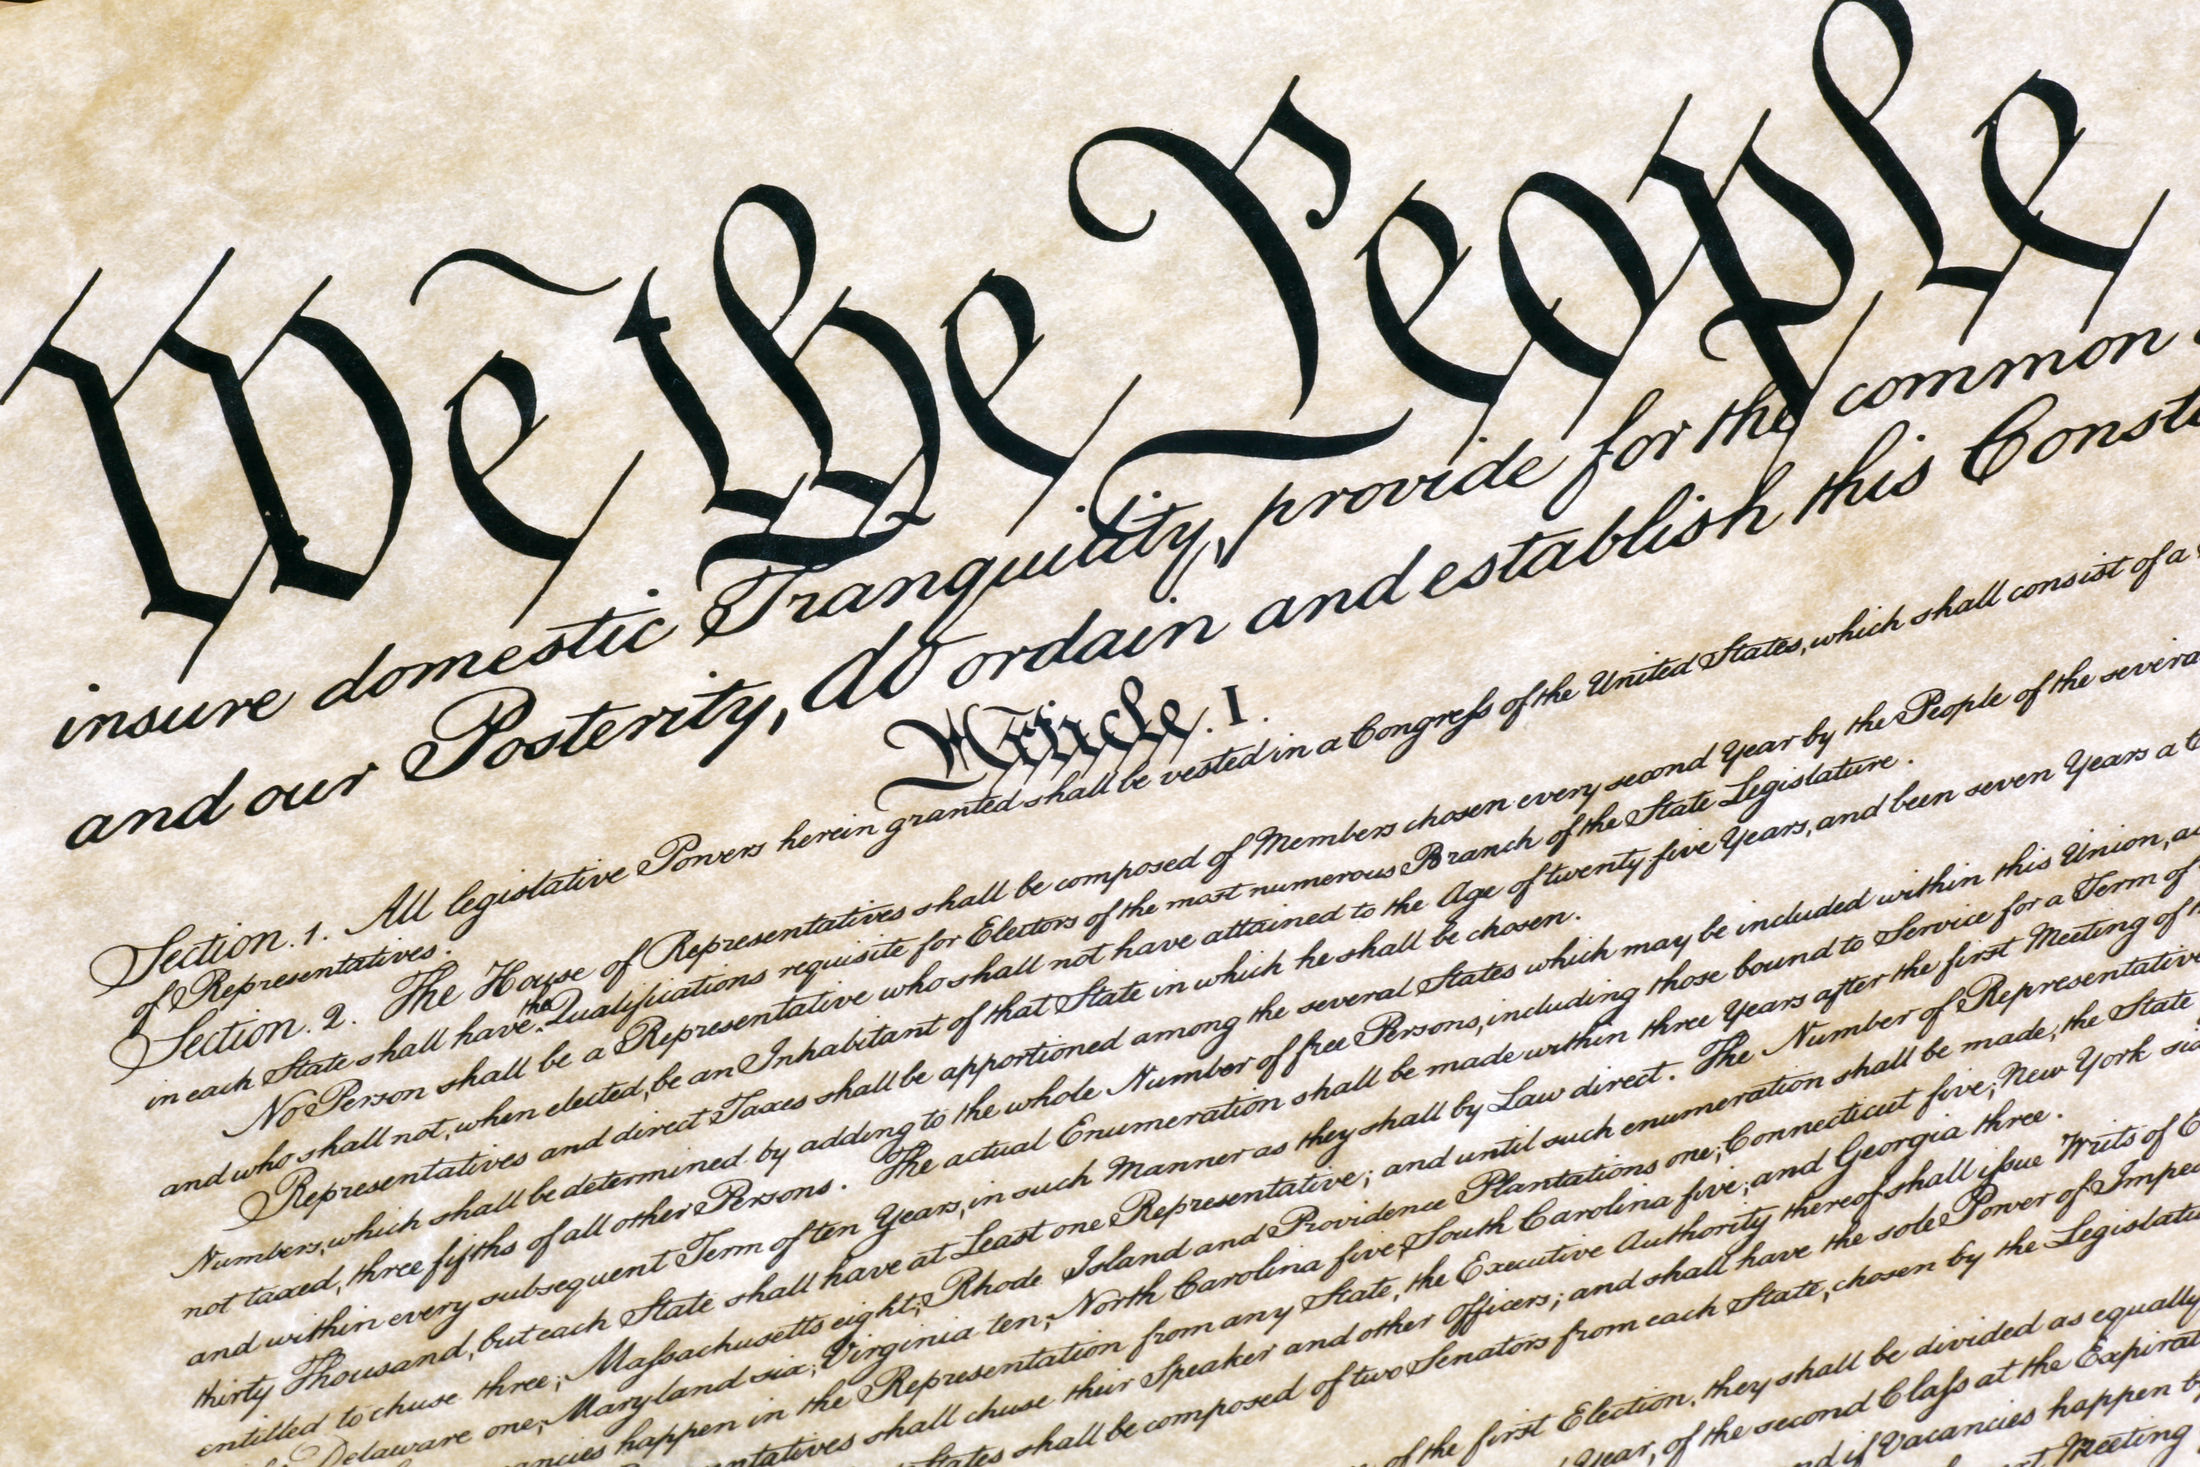 We the People
insure domestic Tranquility, provide for the common
and our Posterity, do ordain and establish this
Article. I.
Section. 1. All legislative Powers herein granted shall be vested in a Congress of the United States, which shall consist of a
of Representatives.
Section. 2. The House of Representatives shall be composed of Members chosen every second Year by the People of the
in each State shall have the Qualifications requisite for Electors of the most numerous Branch of the State Legislature.
No Person shall be a Representative who shall not have attained to the Age of twenty five Years, and been seven Years a
and who shall not, when elected, be an Inhabitant of that State in which he shall be chosen.
Representatives and direct Taxes shall be apportioned among the several States which may be included within this Union,
Numbers, which shall be determined by adding to the whole Number of free Persons, including those bound to Service for a Term of
not taxed, three fifths of all other Persons. The actual Enumeration shall be made within three Years after the first Meeting of
and within every subsequent Term of ten Years, in such Manner as they shall by Law direct. The Number of
thirty Thousand, but each State shall have at Least one Representative; and until such enumeration shall be made, the State
entitled to chuse three, Massachusetts eight, Rhode Island and Providence Plantations one, Connecticut five, New York
Delaware one, Maryland six, Virginia ten, North Carolina five, South Carolina five, and Georgia three.
happen in the Representation from any State, the Executive Authority thereof shall issue Writs of
shall chuse their Speaker and other Officers; and shall have the sole Power of
shall be composed of two Senators from each State, chosen by the
of the first Election, they shall be divided as equally
Year, of the second Class at the
if Vacancies happen
Meeting